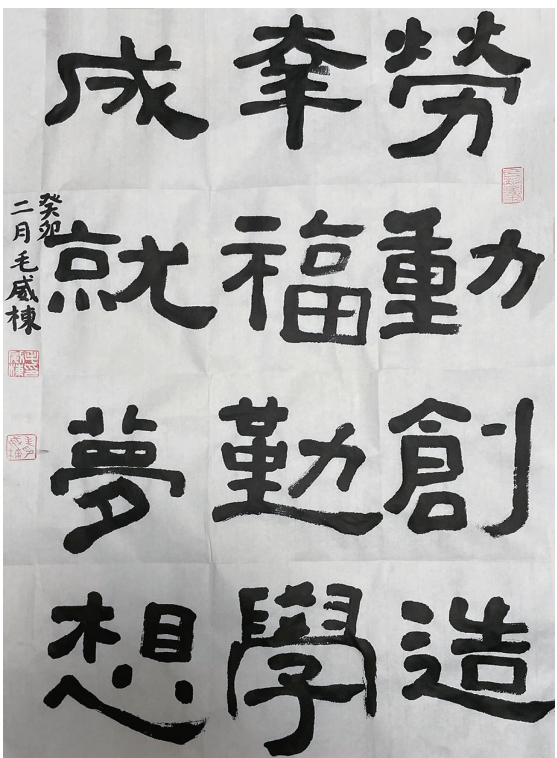 勞動創造
幸福勤學
成就夢想
癸卯
二月毛威棟